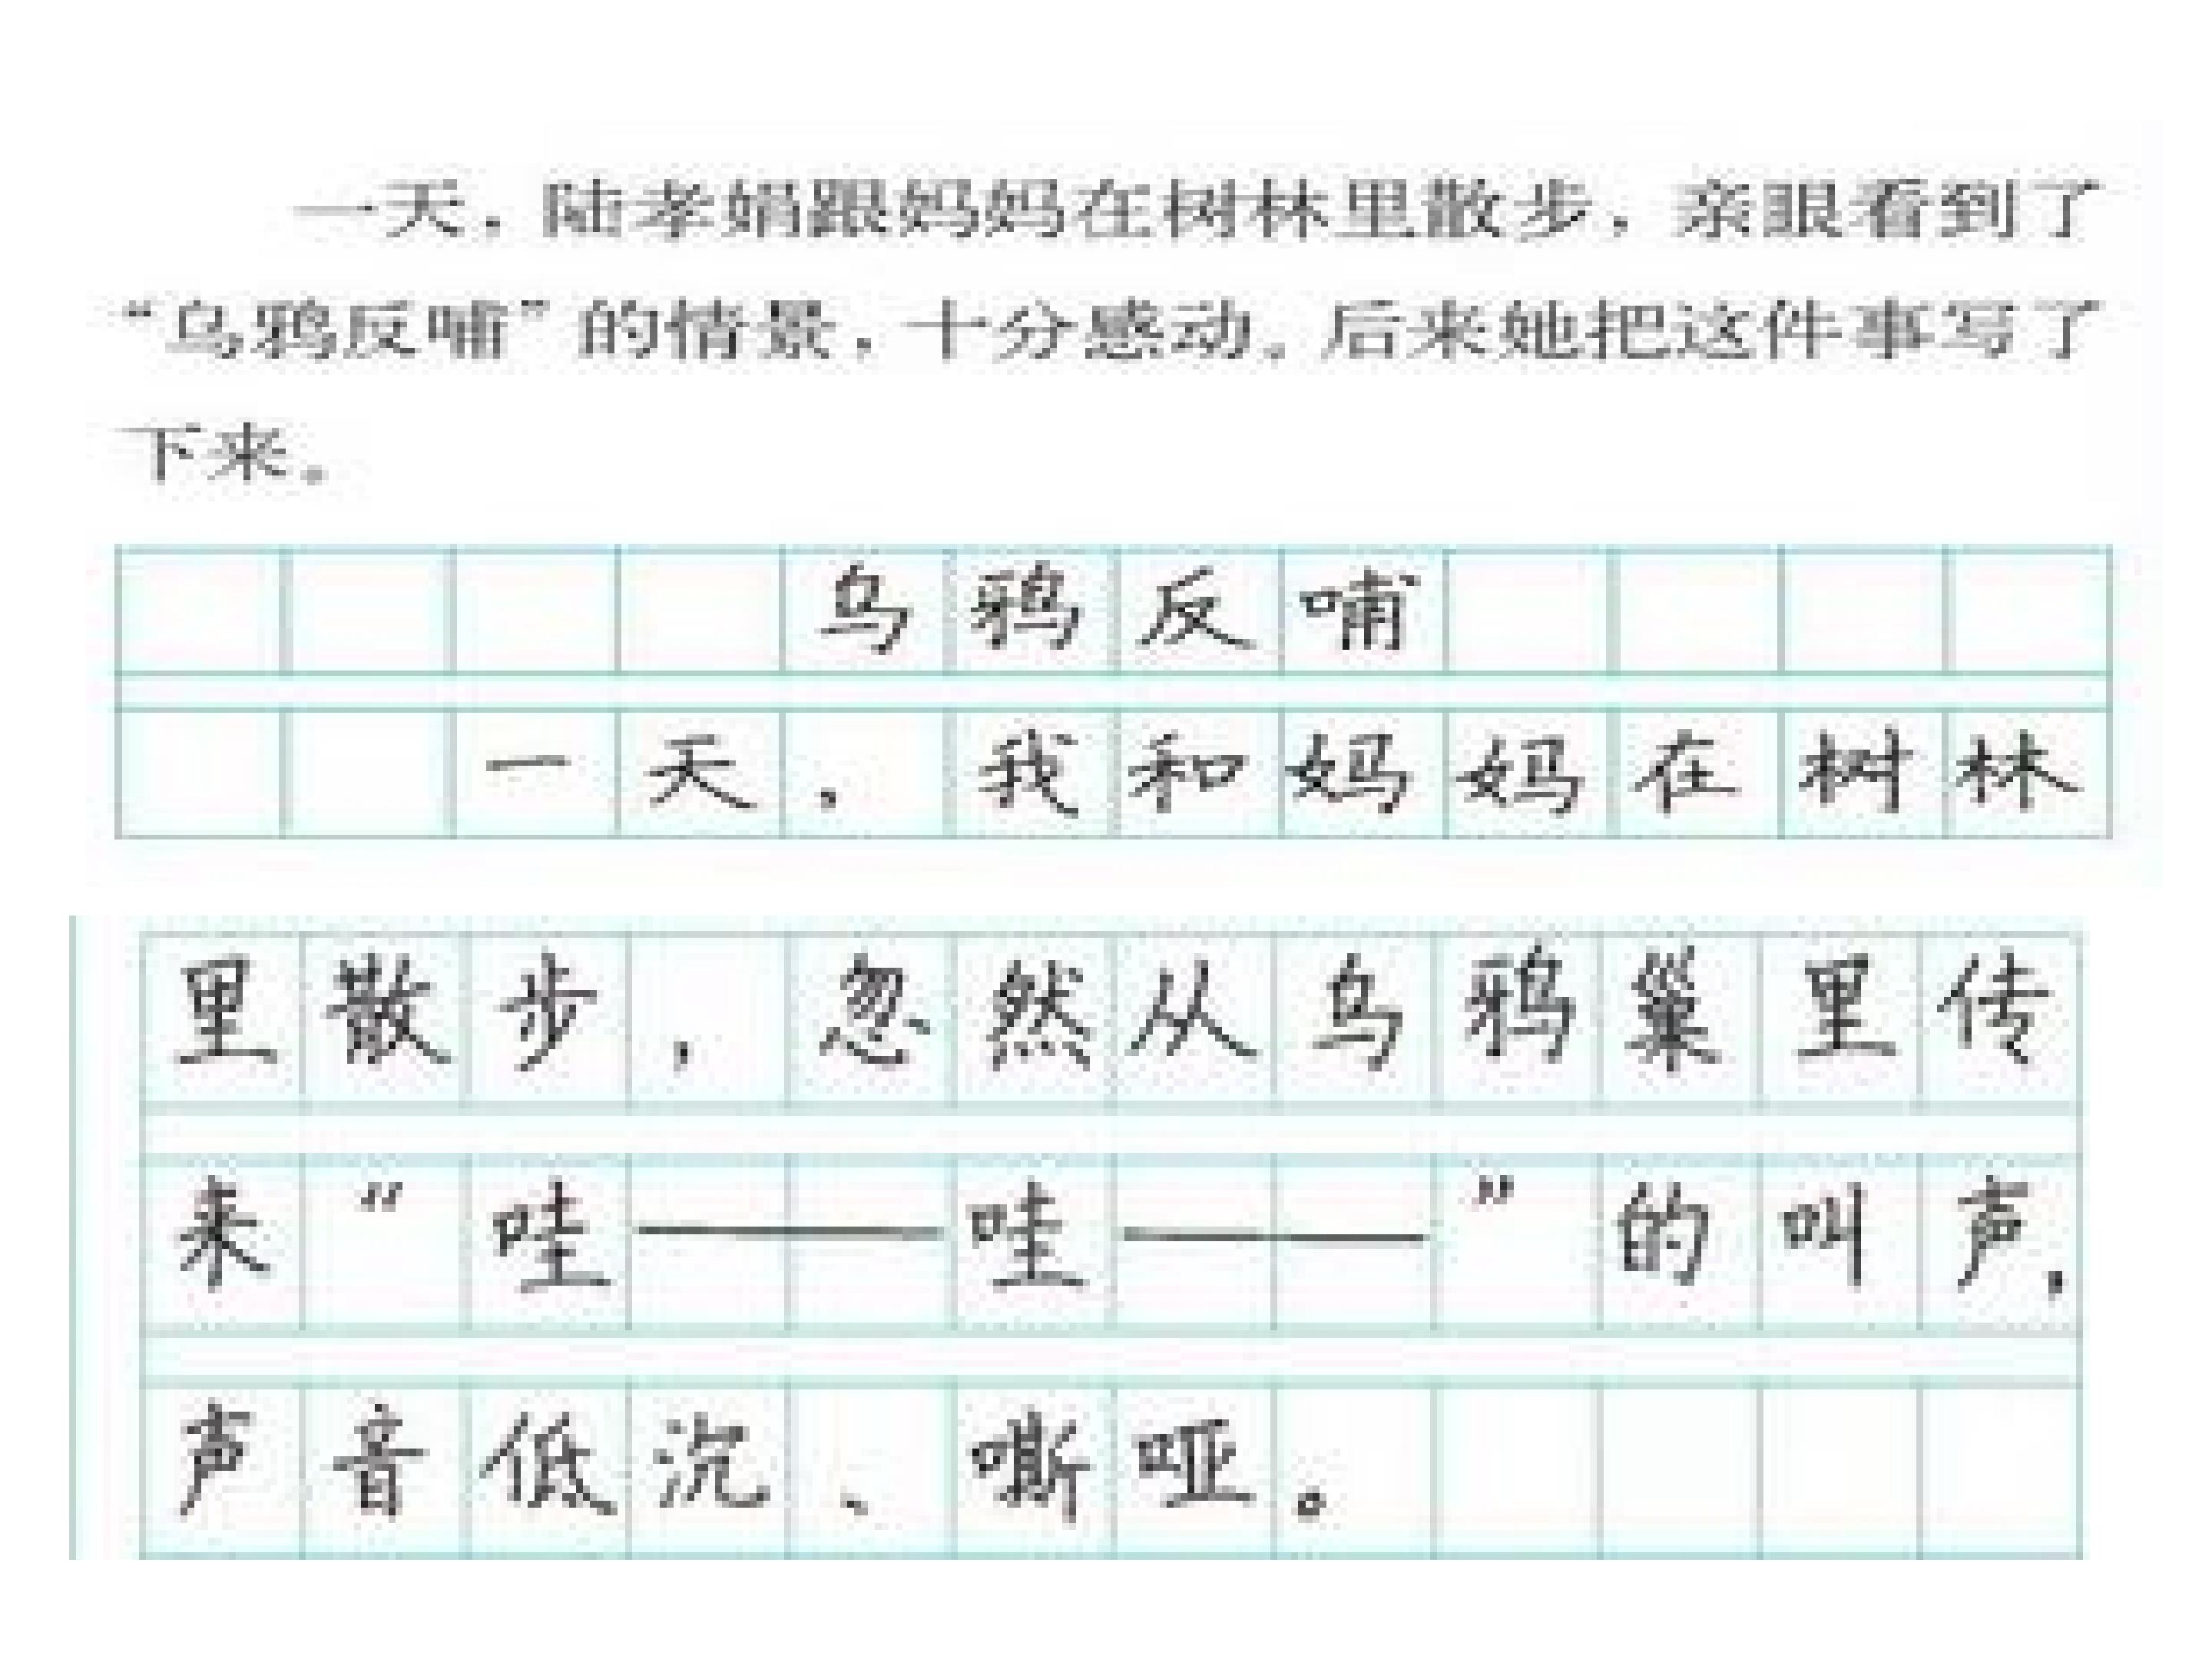 一天，陆孝娟跟妈妈在树林里散步，亲眼看到了
“乌鸦反哺”的情景，十分感动。后来她把这件事写了
下来。
乌鸦反哺
一天，我和妈妈在树林
里散步，忽然从乌鸦巢里传
来“哇——哇——”的叫声，
声音低沉、嘶哑。